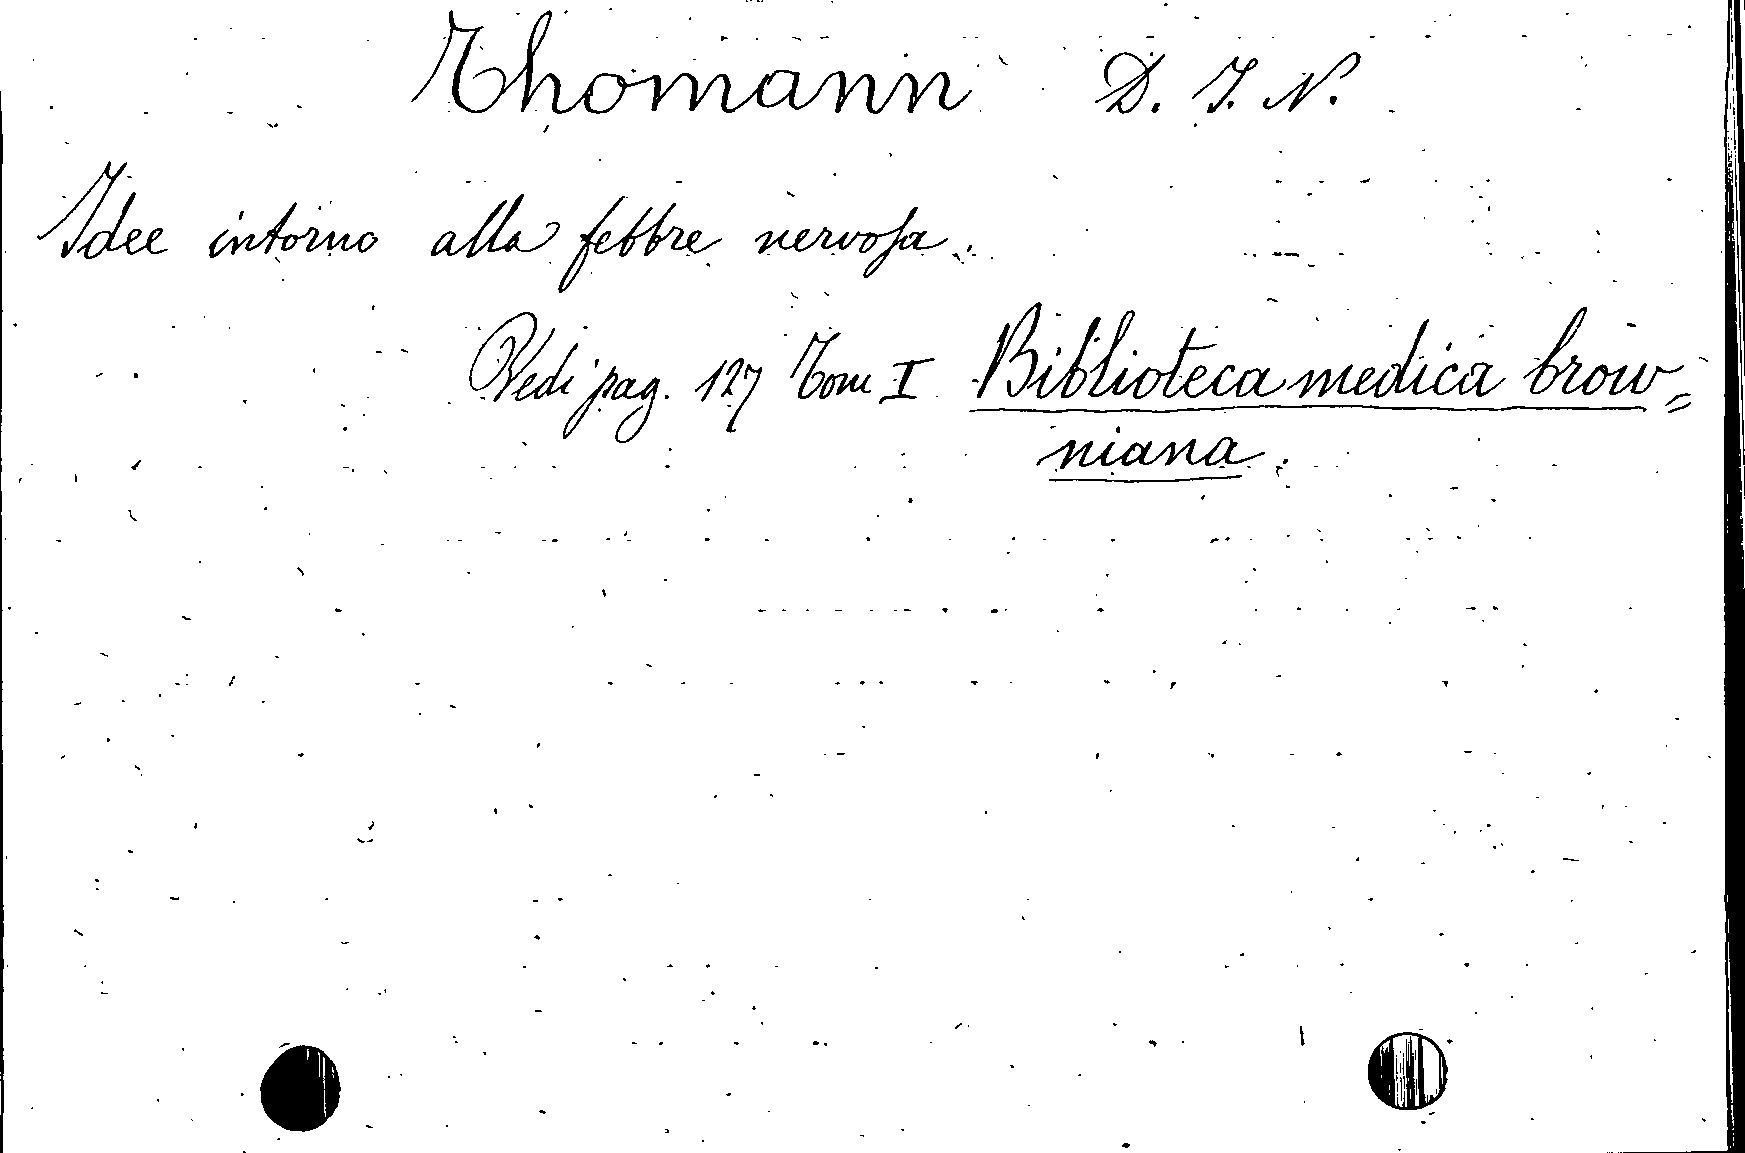 Thomann D. J. N.
Idee intorno alla febbre nervosa.
Vedi pag. 127 Tom I Biblioteca medica brow=
niana.